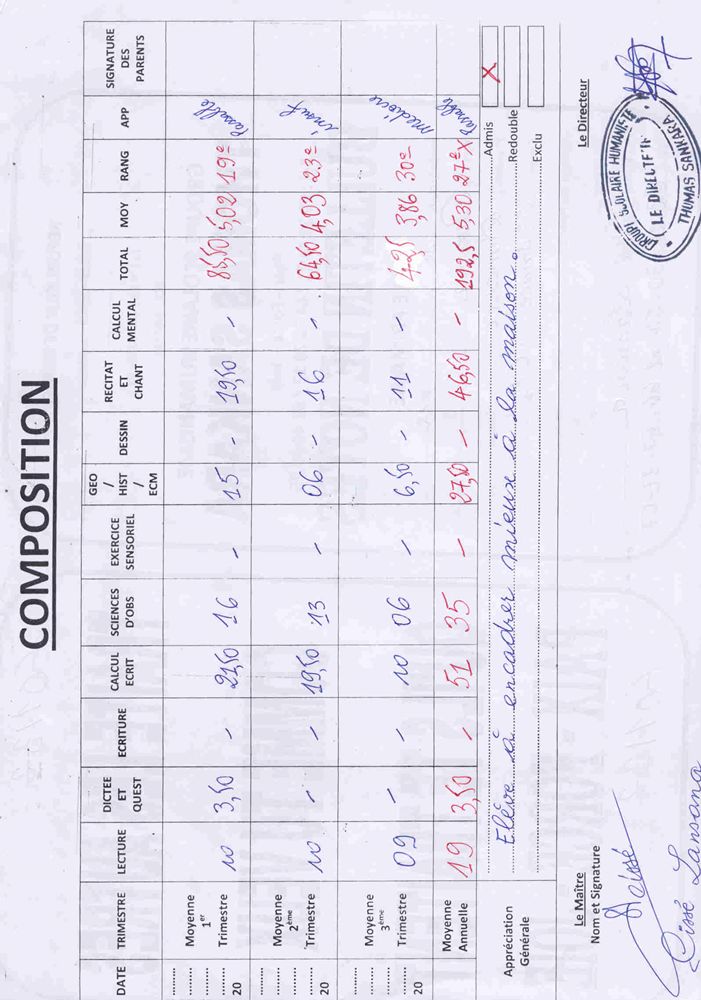 COMPOSITION
DATE TRIMESTRE LECTURE DICTEE ET QUEST ECRITURE CALCUL ECRIT SCIENCES D'OBS EXERCICE SENSORIEL GEO / HIST / ECM DESSIN RECITAT ET CHANT CALCUL MENTAL TOTAL MOY RANG APP SIGNATURE DES PARENTS
......... ......... ......... 20 Moyenne 1er Trimestre 10 3,50 - 21,50 16 - 15 - 19,50 - 85,50 5,02 19e Passable
......... ......... ......... 20 Moyenne 2ème Trimestre 10 - - 19,50 13 - 06 - 16 - 64,50 4,03 23e insuf
......... ......... ......... 20 Moyenne 3ème Trimestre 09 - - 10 06 - 6,50 - 11 - 42,5 3,86 30e médiocre
Moyenne Annuelle 19 3,50 - 51 35 - 27,50 - 46,50 - 192,5 5,30 27eX Passable
Appréciation Générale
Admis X
Elève à encadrer mieux à la maison. Redouble
Exclu
Le Maître
Nom et Signature
Cissé Lansana
Le Directeur
GROUPE SCOLAIRE HUMANISTE
LE DIRECTEUR
THOMAS SANKARA